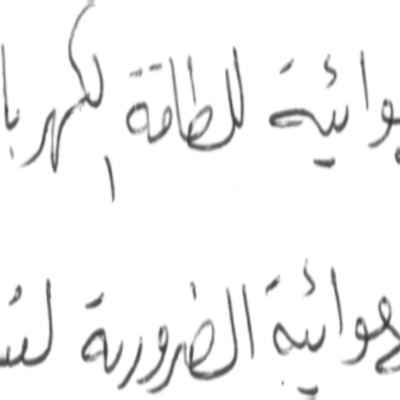 وائية للطاقة الكهربا
هوائية الضرورية لتش